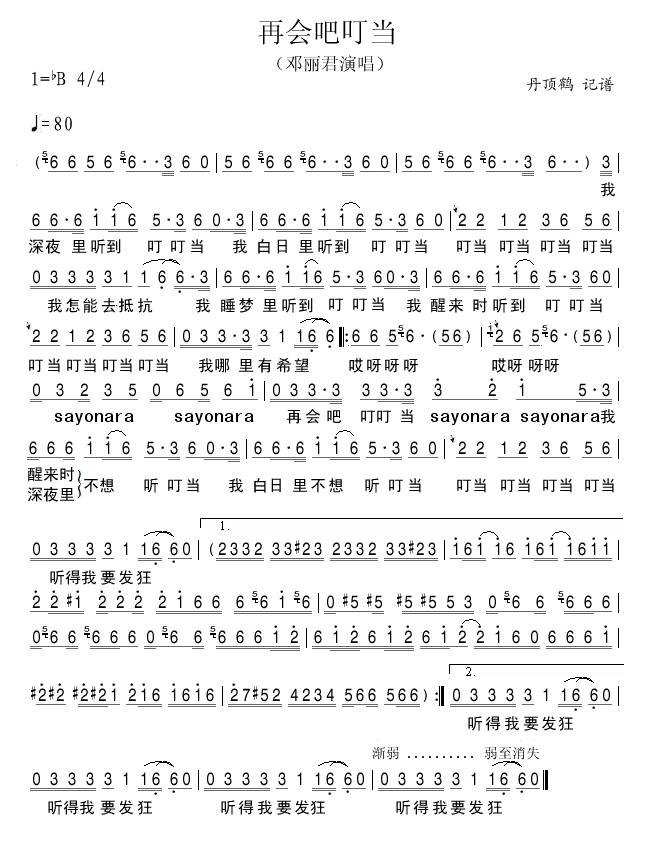 再会吧叮当
（邓丽君演唱）
1=♭B 4/4
丹顶鹤 记谱
♩=80
(⁵6 6 5 6 ⁵6··3 6 0 | 5 6 ⁵6 6 ⁵6··3 6 0 | 5 6 ⁵6 6 ⁵6··3 6··) 3 |
我
6 6·6 i i 6 5·3 6 0·3 | 6 6·6 i i 6 5·3 6 0 | 2 2 1 2 3 6 5 6 |
深夜 里听到 叮 叮当 我 白日 里听到 叮 叮当 叮当 叮当 叮当 叮当
0 3 3 3 3 1 1 6 6·3 | 6 6·6 i i 6 5·3 6 0·3 | 6 6·6 i i 6 5·3 6 0 |
我怎能去抵抗 我 睡梦 里听到 叮 叮当 我 醒来 时听到 叮 叮当
2 2 1 2 3 6 5 6 | 0 3 3·3 3 1 1 6 6 :‖: 6 6 5 ⁵6·(5 6) | 2 6 5 ⁵6·(5 6) |
叮当叮当叮当叮当 我哪 里有希望 哎呀呀呀 哎呀 呀呀
0 3 2 3 5 0 6 5 6 i | 0 3 3·3 3·3 3 2 i 5·3 |
sayonara sayonara 再会吧 叮叮 当 sayonara sayonara我
6 6 6 i i 6 5·3 6 0·3 | 6 6·6 i i 6 5·3 6 0 | 2 2 1 2 3 6 5 6 |
醒来时
深夜里
不想 听 叮当 我 白日 里不想 听 叮当 叮当 叮当 叮当 叮当
1.
0 3 3 3 3 1 1 6 6 0 | (2 3 3 2 3 3 #2 3 2 3 3 2 3 3 #2 3 | i 6 i i 6 i 6 i i 6 i i |
听得我要发狂
2 2 #i 2 2 2 2 i 6 6 ⁵6 6 i ⁵6 | 0 #5 #5 #5 #5 5 3 0 ⁵6 6 ⁵6 6 6 |
0 ⁵6 6 ⁵6 6 6 0 ⁵6 6 ⁵6 6 6 i 2 | 6 i 2 6 i 2 6 i 2 2 i 6 0 6 6 6 i |
#2 #2 #2 #2 i 2 i 6 i 6 i 6 | 2 7 #5 2 4 2 3 4 5 6 6 5 6 6) :‖
2.
0 3 3 3 3 1 1 6 6 0 |
听得我要发狂
渐弱 .......... 弱至消失
0 3 3 3 3 1 1 6 6 0 | 0 3 3 3 3 1 1 6 6 0 | 0 3 3 3 3 1 1 6 6 0 ‖
听得我要发狂 听得我要发狂 听得我要发狂